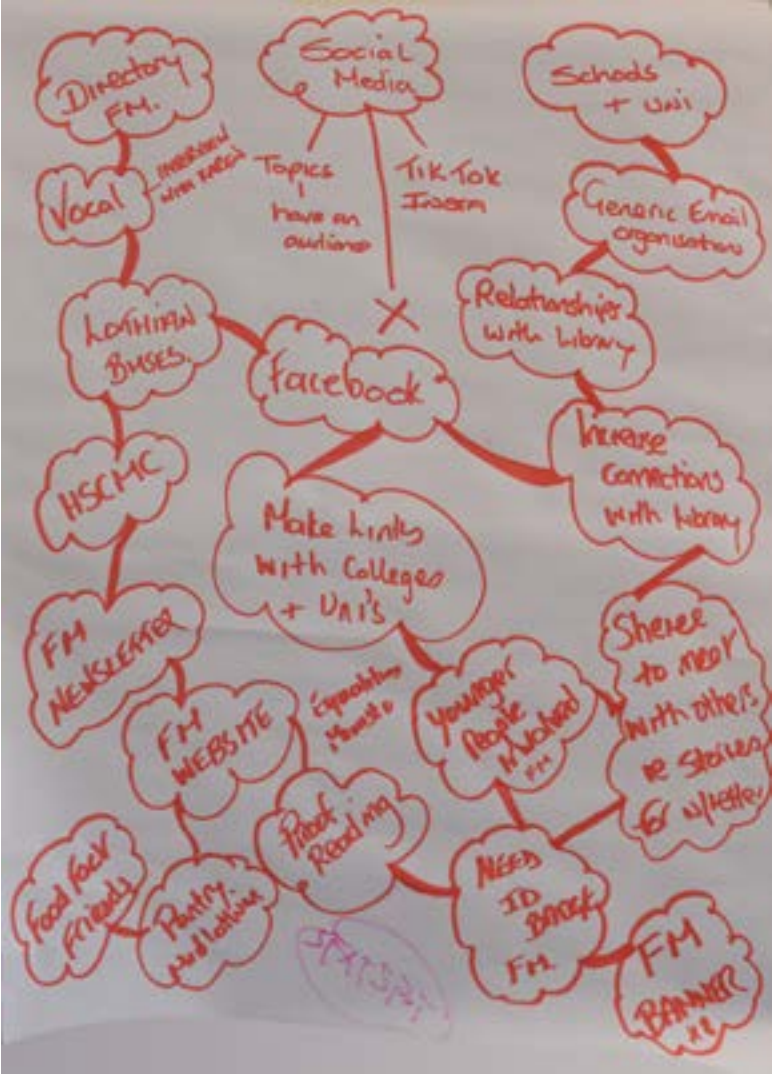 Directory
FM.
Vocal
INTERVIEW
WITH KAREN
Social
Media
Topics
have an
audience
TikTok
Insta
Schools
+ UNI
Generic Email
organisations
Relationships
with Library
LOTHIAN
BUSES.
Facebook
Increase
Connections
with Library
HSCMC
Make Links
with Colleges
+ UNI'S
FM
NEWSLETTER
FM
WEBSITE
younger
People
Involved
FM
to meet
with others
re stories
for n/letter
Proof
Reading
NEED
ID
BADGE
FM
FM
BANNER
Food Fact
Friends
Pantry.
Midlothian